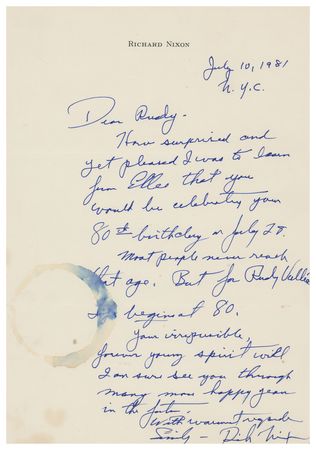 RICHARD NIXON
July 10, 1981
N.Y.C.
Dear Rudy -
How surprised and
yet pleased I was to learn
from Ellie that you
would be celebrating your
80th birthday on July 28.
Most people never reach
that age. But for Rudy Vallee
life begins at 80.
Your irrepressible,
forever young spirit will
I am sure see you through
many more happy years
in the future.
With warm regards
Sincerely - Dick Nixon